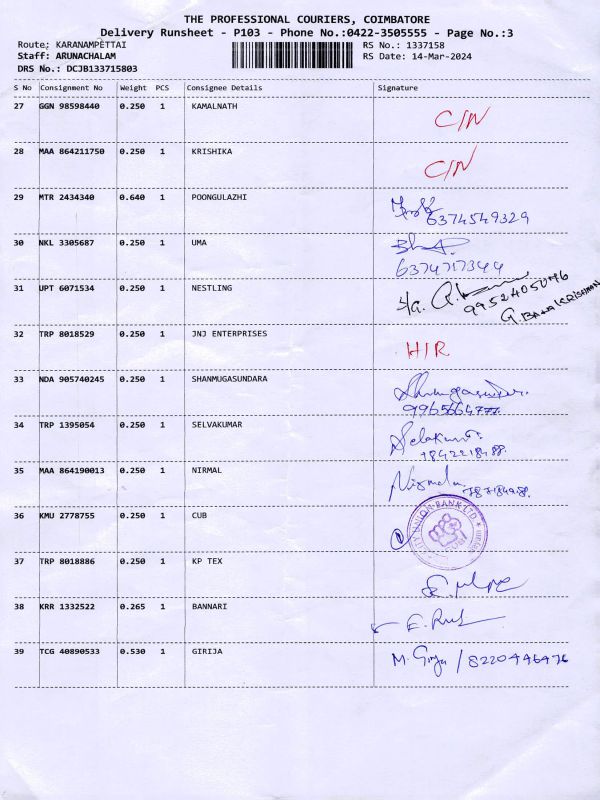 THE PROFESSIONAL COURIERS, COIMBATORE
Delivery Runsheet - P103 - Phone No.:0422-3505555 - Page No.:3
Route: KARANAMPETTAI RS No.: 1337158
Staff: ARUNACHALAM RS Date: 14-Mar-2024
DRS No.: DCJB133715803
S No Consignment No Weight PCS Consignee Details Signature
27 GGN 98598440 0.250 1 KAMALNATH C/N
28 MAA 864211750 0.250 1 KRISHIKA C/N
29 MTR 2434340 0.640 1 POONGULAZHI
6374549329
30 NKL 3305687 0.250 1 UMA
6374717344
31 UPT 6071534 0.250 1 NESTLING
9952405046
G. BALAKRISHNAN
32 TRP 8018529 0.250 1 JNJ ENTERPRISES H/R
33 NDA 905740245 0.250 1 SHANMUGASUNDARA
9965664777
34 TRP 1395054 0.250 1 SELVAKUMAR Selakumr.
9842218488
35 MAA 864190013 0.250 1 NIRMAL Nirmala
36 KMU 2778755 0.250 1 CUB CITY UNION BANK LTD
37 TRP 8018886 0.250 1 KP TEX
38 KRR 1332522 0.265 1 BANNARI
39 TCG 40890533 0.530 1 GIRIJA M. Girja / 8220446476